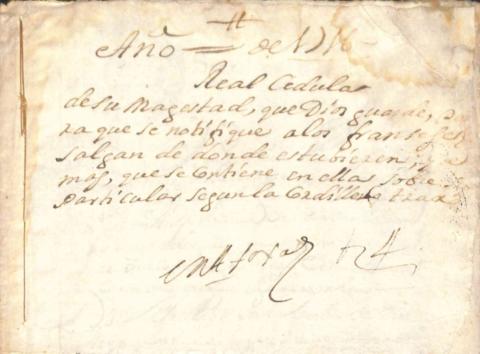 Año de 1716
Real Cedula
de su Magestad, que Dios guarde, pa
ra que se notifique a los franseses
salgan de donde estubieren, y de
mas, que se Contiene en ella sobre
particular segun la Cordillera